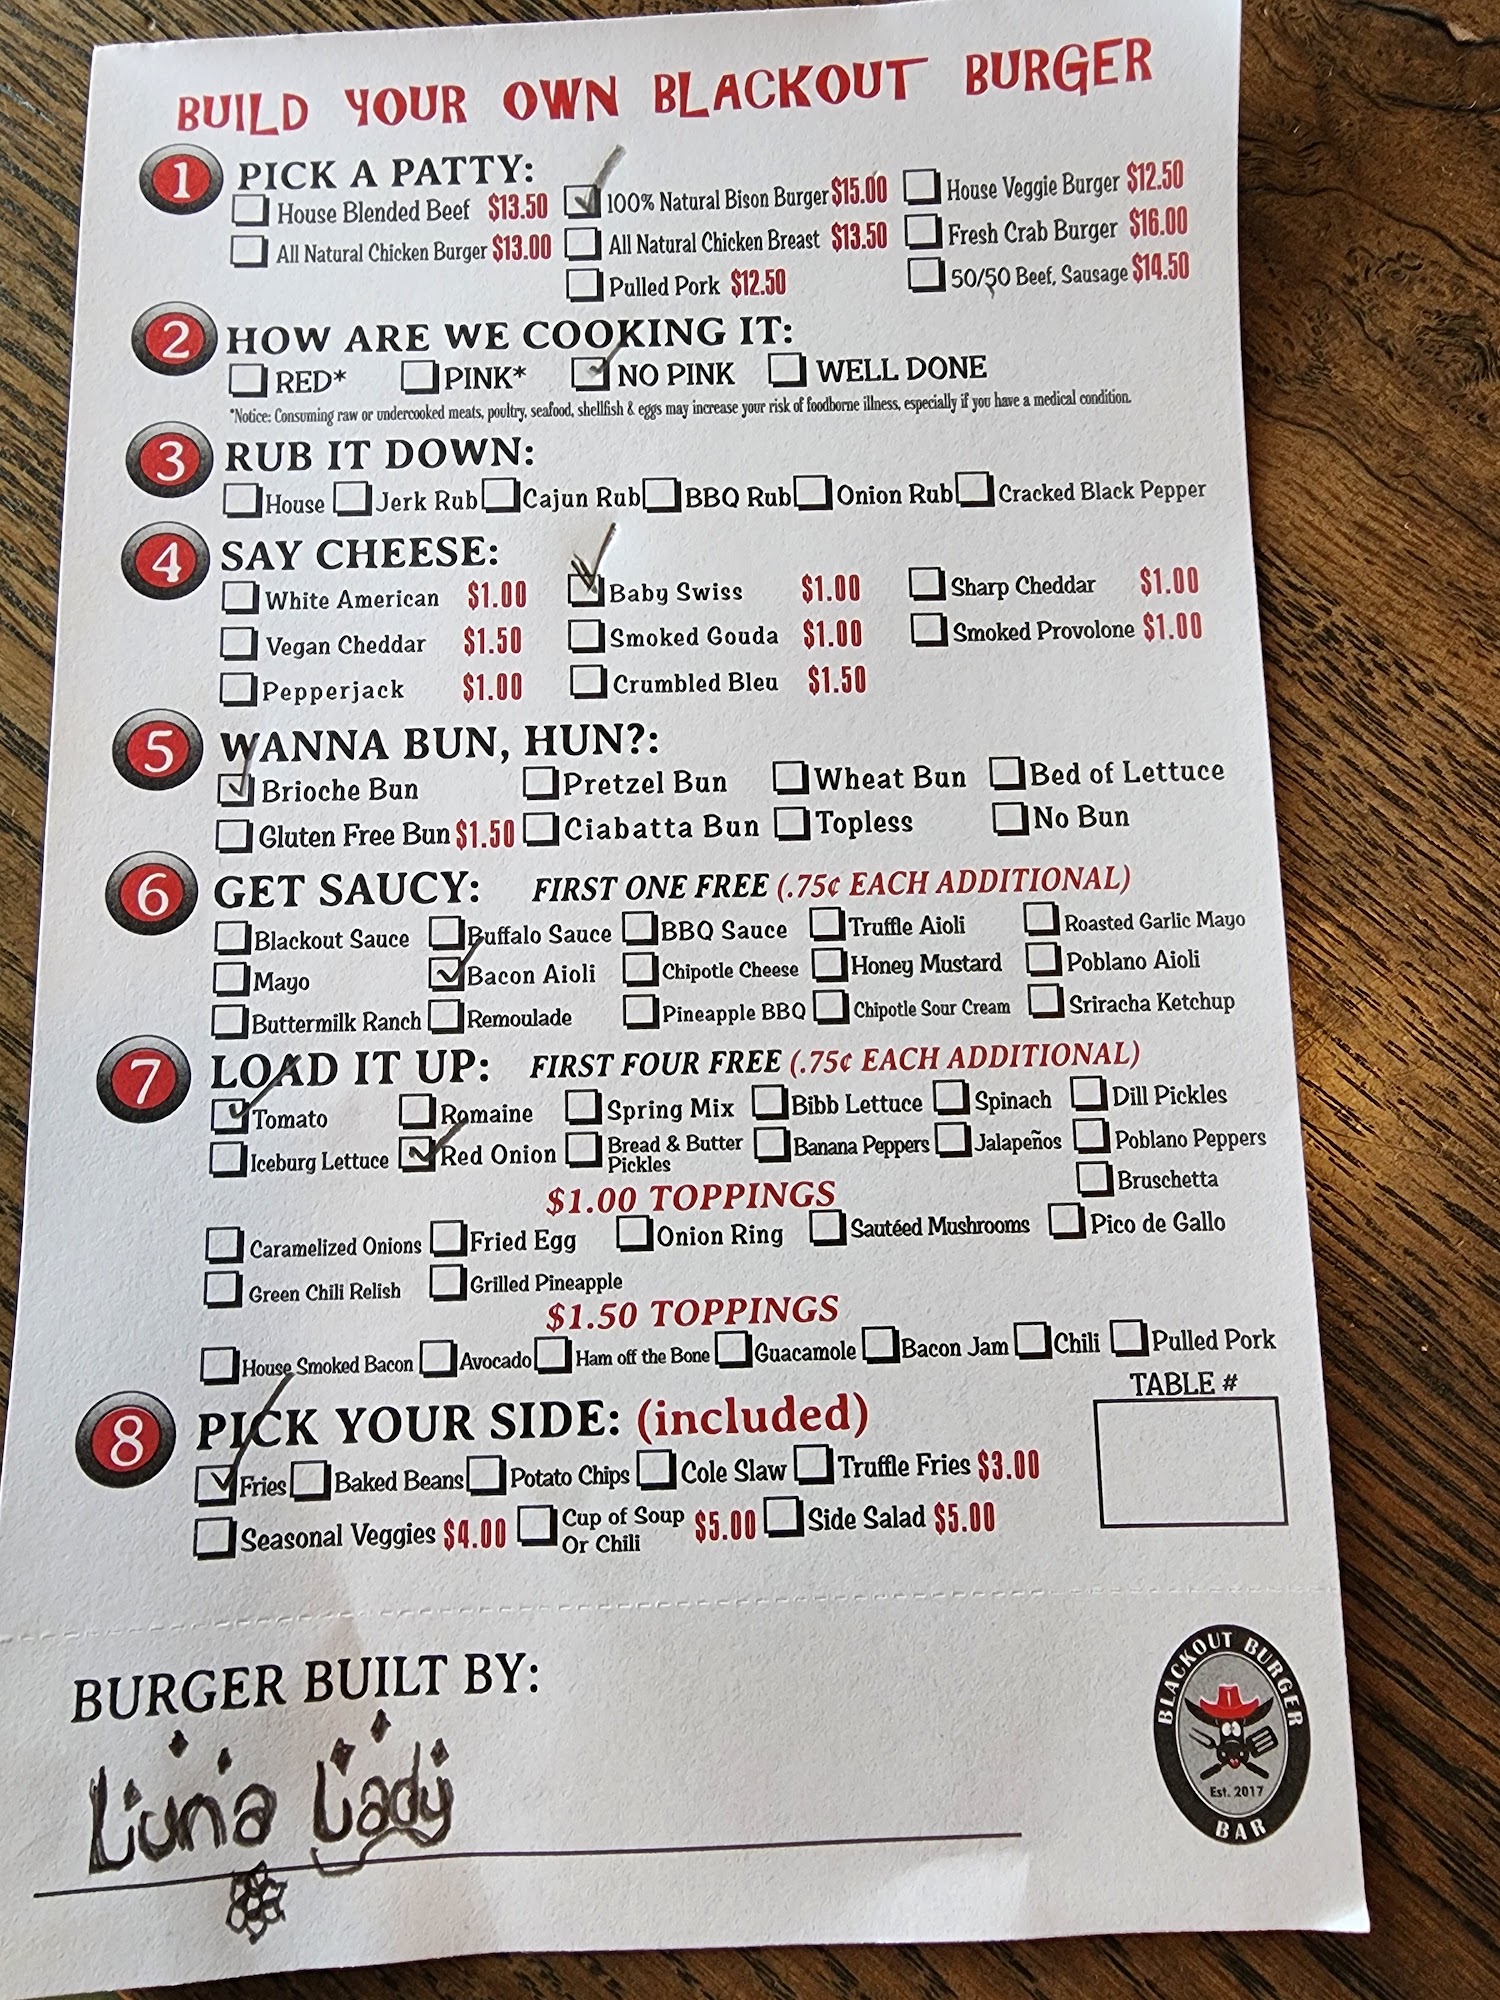 BUILD YOUR OWN BLACKOUT BURGER
1 PICK A PATTY:
House Blended Beef $13.50 100% Natural Bison Burger $15.00 House Veggie Burger $12.50
All Natural Chicken Burger $13.00 All Natural Chicken Breast $13.50 Fresh Crab Burger $16.00
Pulled Pork $12.50 50/50 Beef, Sausage $14.50
2 HOW ARE WE COOKING IT:
RED* PINK* NO PINK WELL DONE
*Notice: Consuming raw or undercooked meats, poultry, seafood, shellfish & eggs may increase your risk of foodborne illness, especially if you have a medical condition.
3 RUB IT DOWN:
House Jerk Rub Cajun Rub BBQ Rub Onion Rub Cracked Black Pepper
4 SAY CHEESE:
White American $1.00 Baby Swiss $1.00 Sharp Cheddar $1.00
Vegan Cheddar $1.50 Smoked Gouda $1.00 Smoked Provolone $1.00
Pepperjack $1.00 Crumbled Bleu $1.50
5 WANNA BUN, HUN?:
Brioche Bun Pretzel Bun Wheat Bun Bed of Lettuce
Gluten Free Bun $1.50 Ciabatta Bun Topless No Bun
6 GET SAUCY: FIRST ONE FREE (.75¢ EACH ADDITIONAL)
Blackout Sauce Buffalo Sauce BBQ Sauce Truffle Aioli Roasted Garlic Mayo
Mayo Bacon Aioli Chipotle Cheese Honey Mustard Poblano Aioli
Buttermilk Ranch Remoulade Pineapple BBQ Chipotle Sour Cream Sriracha Ketchup
7 LOAD IT UP: FIRST FOUR FREE (.75¢ EACH ADDITIONAL)
Tomato Romaine Spring Mix Bibb Lettuce Spinach Dill Pickles
Iceburg Lettuce Red Onion Bread & Butter Pickles Banana Peppers Jalapeños Poblano Peppers
Bruschetta
$1.00 TOPPINGS
Caramelized Onions Fried Egg Onion Ring Sautéed Mushrooms Pico de Gallo
Green Chili Relish Grilled Pineapple
$1.50 TOPPINGS
House Smoked Bacon Avocado Ham off the Bone Guacamole Bacon Jam Chili Pulled Pork
TABLE #
8 PICK YOUR SIDE: (included)
Fries Baked Beans Potato Chips Cole Slaw Truffle Fries $3.00
Seasonal Veggies $4.00 Cup of Soup Or Chili $5.00 Side Salad $5.00
BURGER BUILT BY:
Luna Lady
BLACKOUT BURGER
Est. 2017
BAR